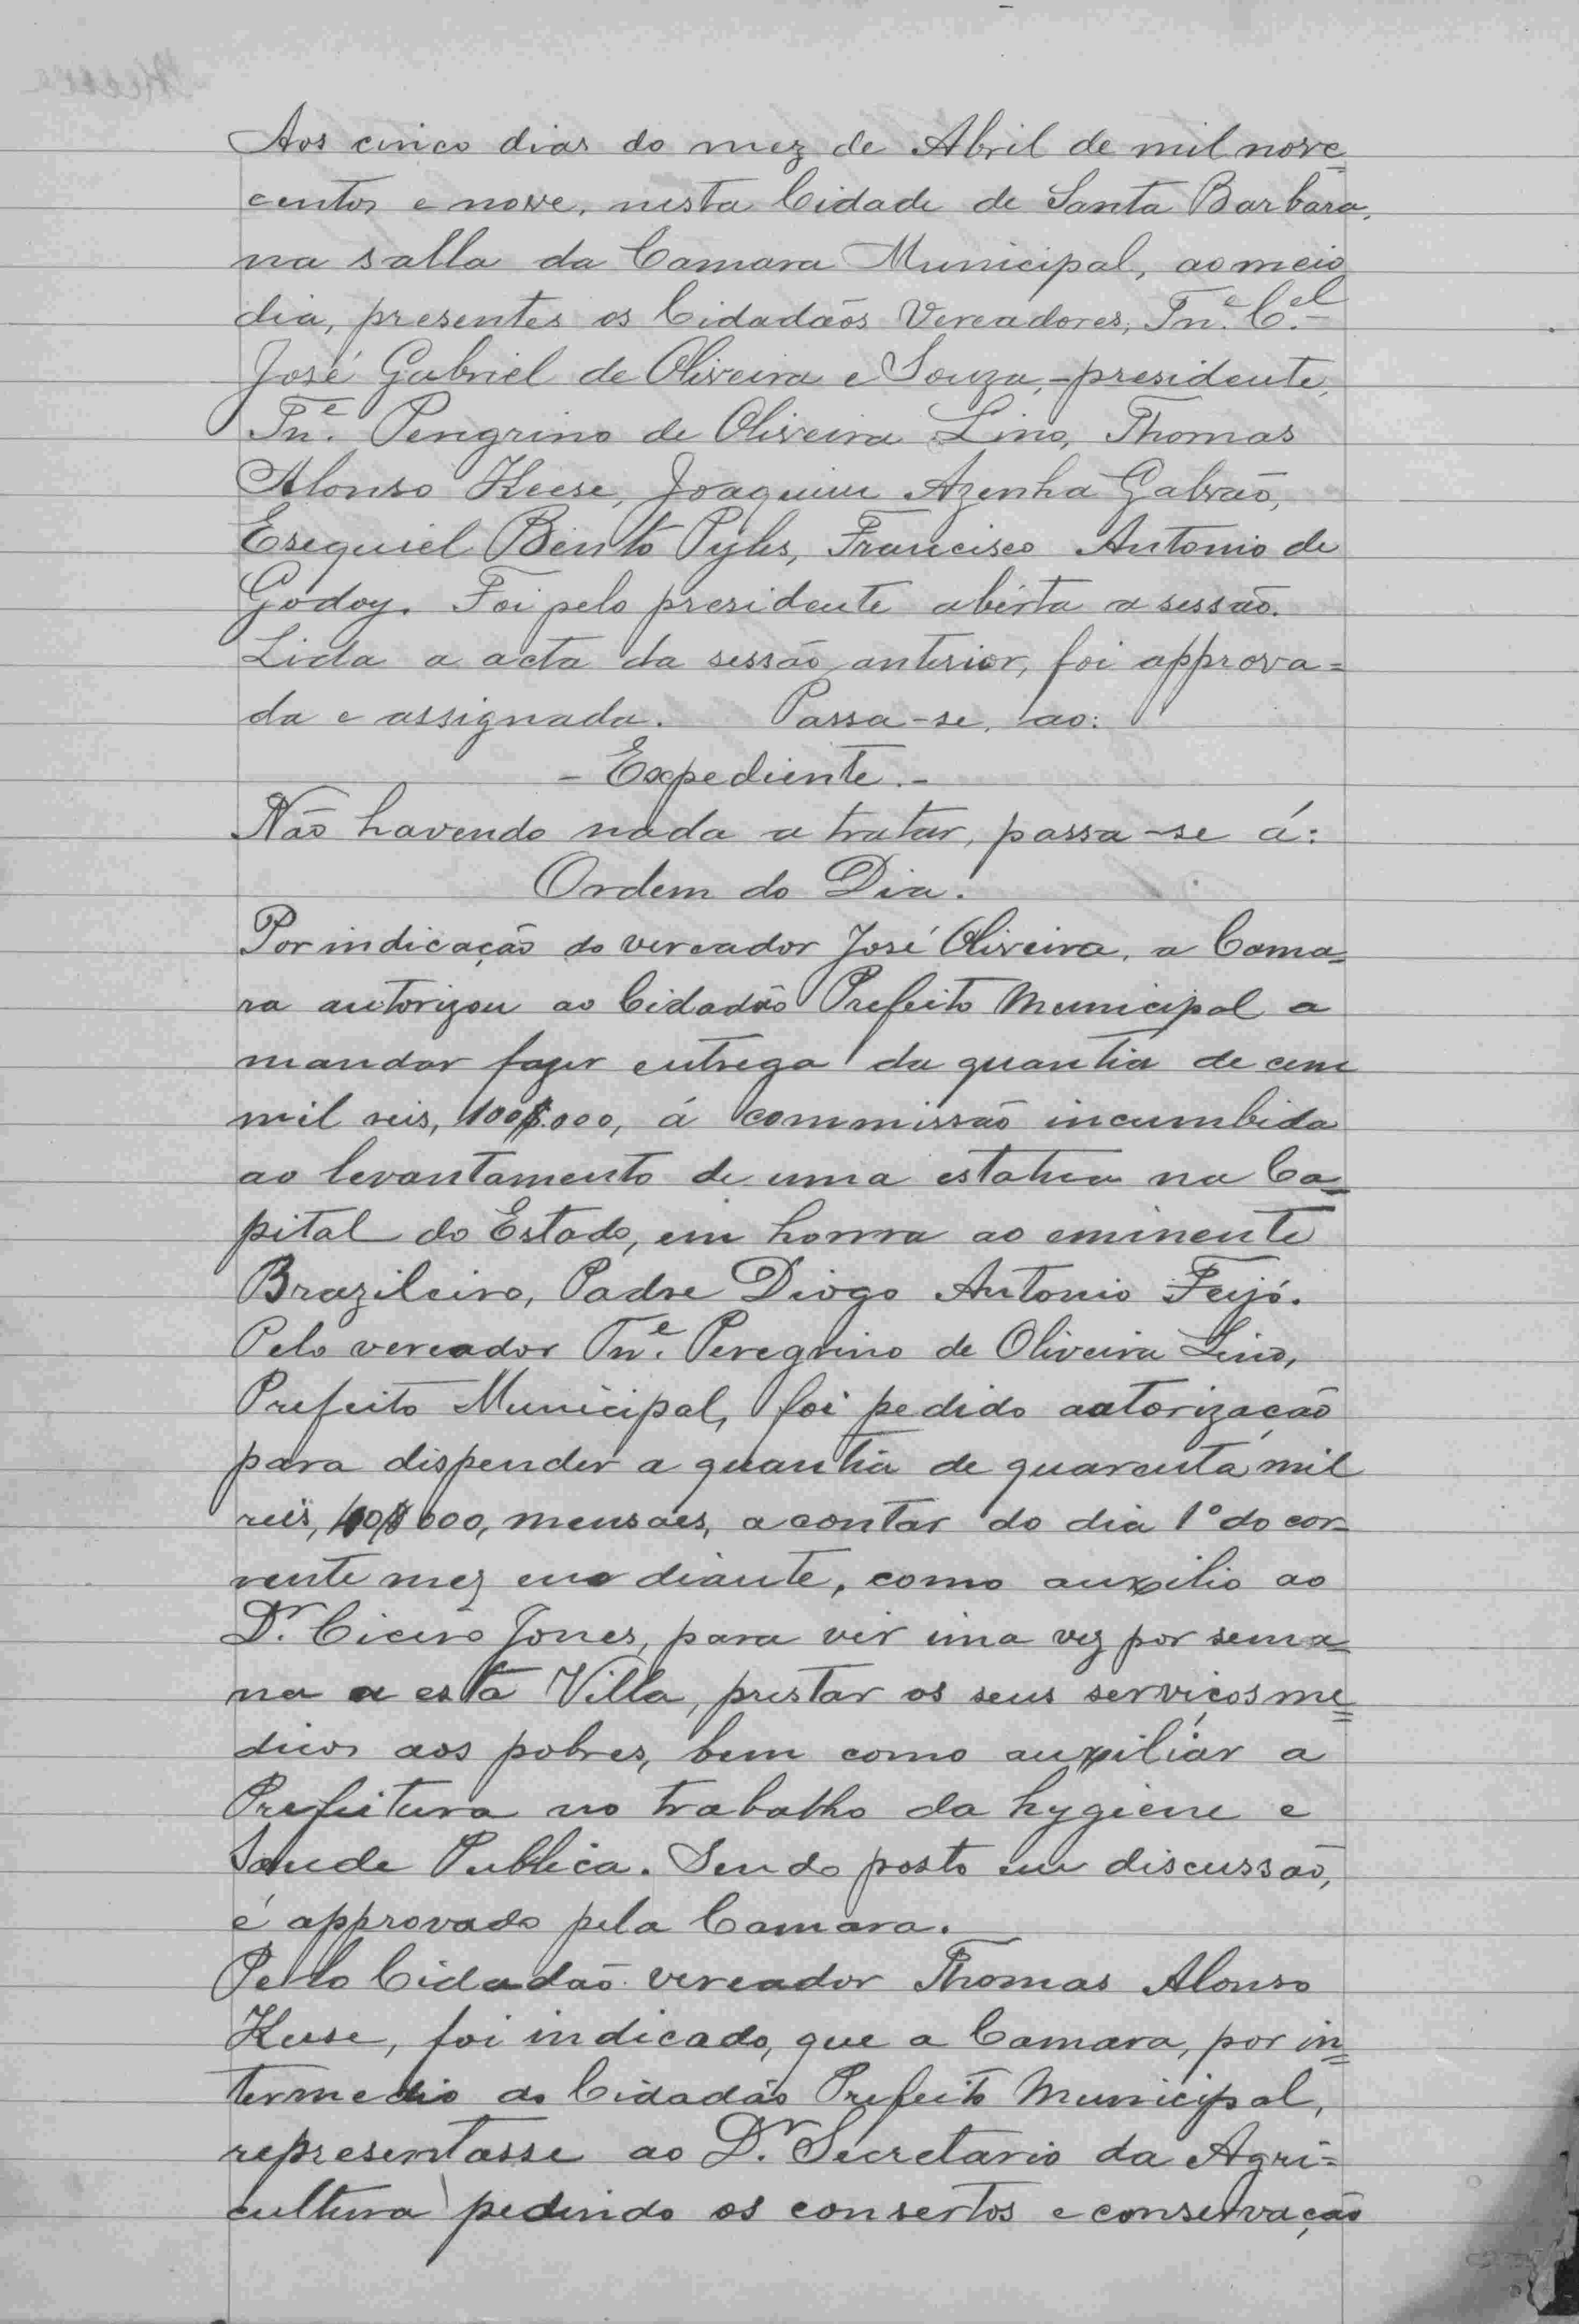 Aos cinco dias do mez de Abril de mil nove=
centos e nove, nesta Cidade de Santa Barbara,
na salla da Camara Municipal, ao meio
dia, presentes os Cidadãos Vereadores, Tn.e C.el
José Gabriel de Oliveira e Souza,-presidente,
Tn.e Peregrino de Oliveira Lino, Thomas
Alonso Keese, Joaquim Azenha Galvão,
Esequiel Bento Pyles, Francisco Antonio de
Godoy. Foi pelo presidente abérta a sessão.
Lida a acta da sessão anterior, foi approva=
da e assignada. Passa-se, ao:
- Expediente.-
Não havendo nada a tratar, passa-se á:
Ordem do Dia.
Por indicação do vereador José Oliveira, a Cama=
ra autorizou ao Cidadão Prefeito Municipal a
mandar fazer entrega da quantia de cem
mil reis, 100$000, á commissão incumbida
ao levantamento de uma estatua na Ca=
pital do Estado, em honra ao eminente
Brazileiro, Padre Diogo Antonio Feijó.
Pelo vereador Tn.e Peregrino de Oliveira Lino,
Prefeito Municipal, foi pedido autorização
para dispender a quantia de quarenta mil
reis, 40$000, mensaes, a contar do dia 1º do cor-
rente mez em diante, como auxilio ao
Dr. Cicero Jones, para vir uma vez por sema=
na a esta Villa, prestar os seus serviços me=
dicos aos pobres, bem como auxiliár a
Prefeitura no trabalho da hygiene e
Saude Publica. Sendo posto em discussão,
é approvado pela Camara.
Pello Cidadão vereador Thomas Alonso
Keese, foi indicado, que a Camara, por in=
termedio do Cidadão Prefeito Municipal,
representasse ao Dr. Secretario da Agri=
cultura pedindo os consertos e conservação